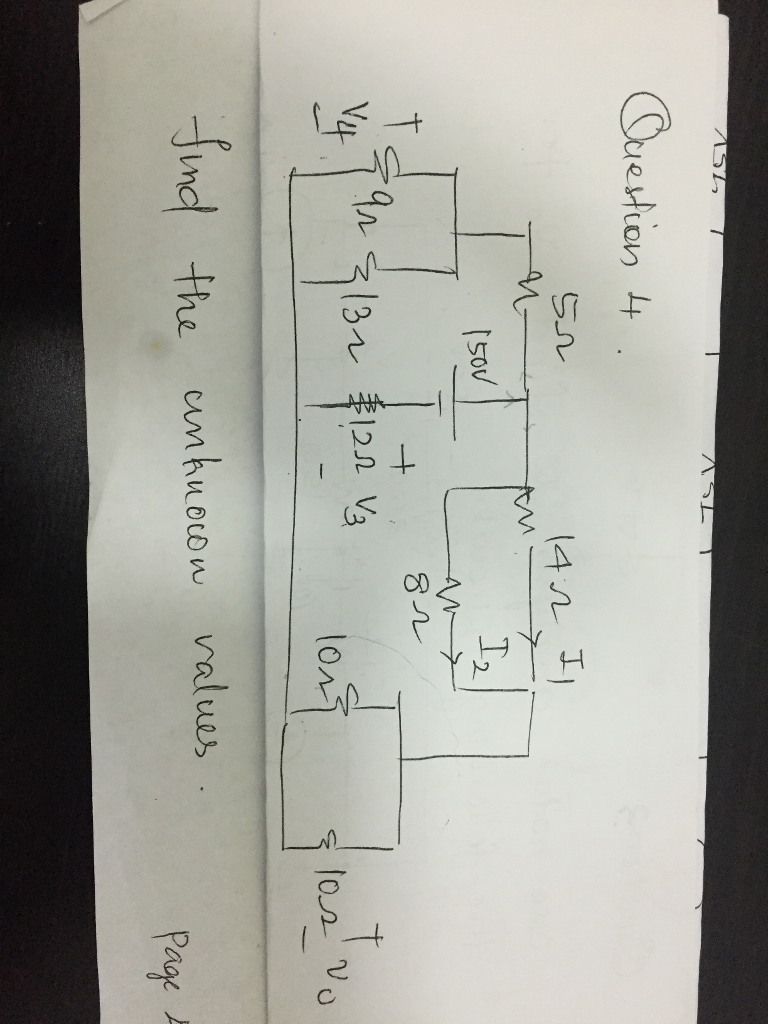 Question 4.
5Ω
14Ω I1
150V
I2
8Ω
+
V4
-
9Ω
13Ω
12Ω
+
V3
-
10Ω
10Ω
+
V0
-
find the unknown values.
Page